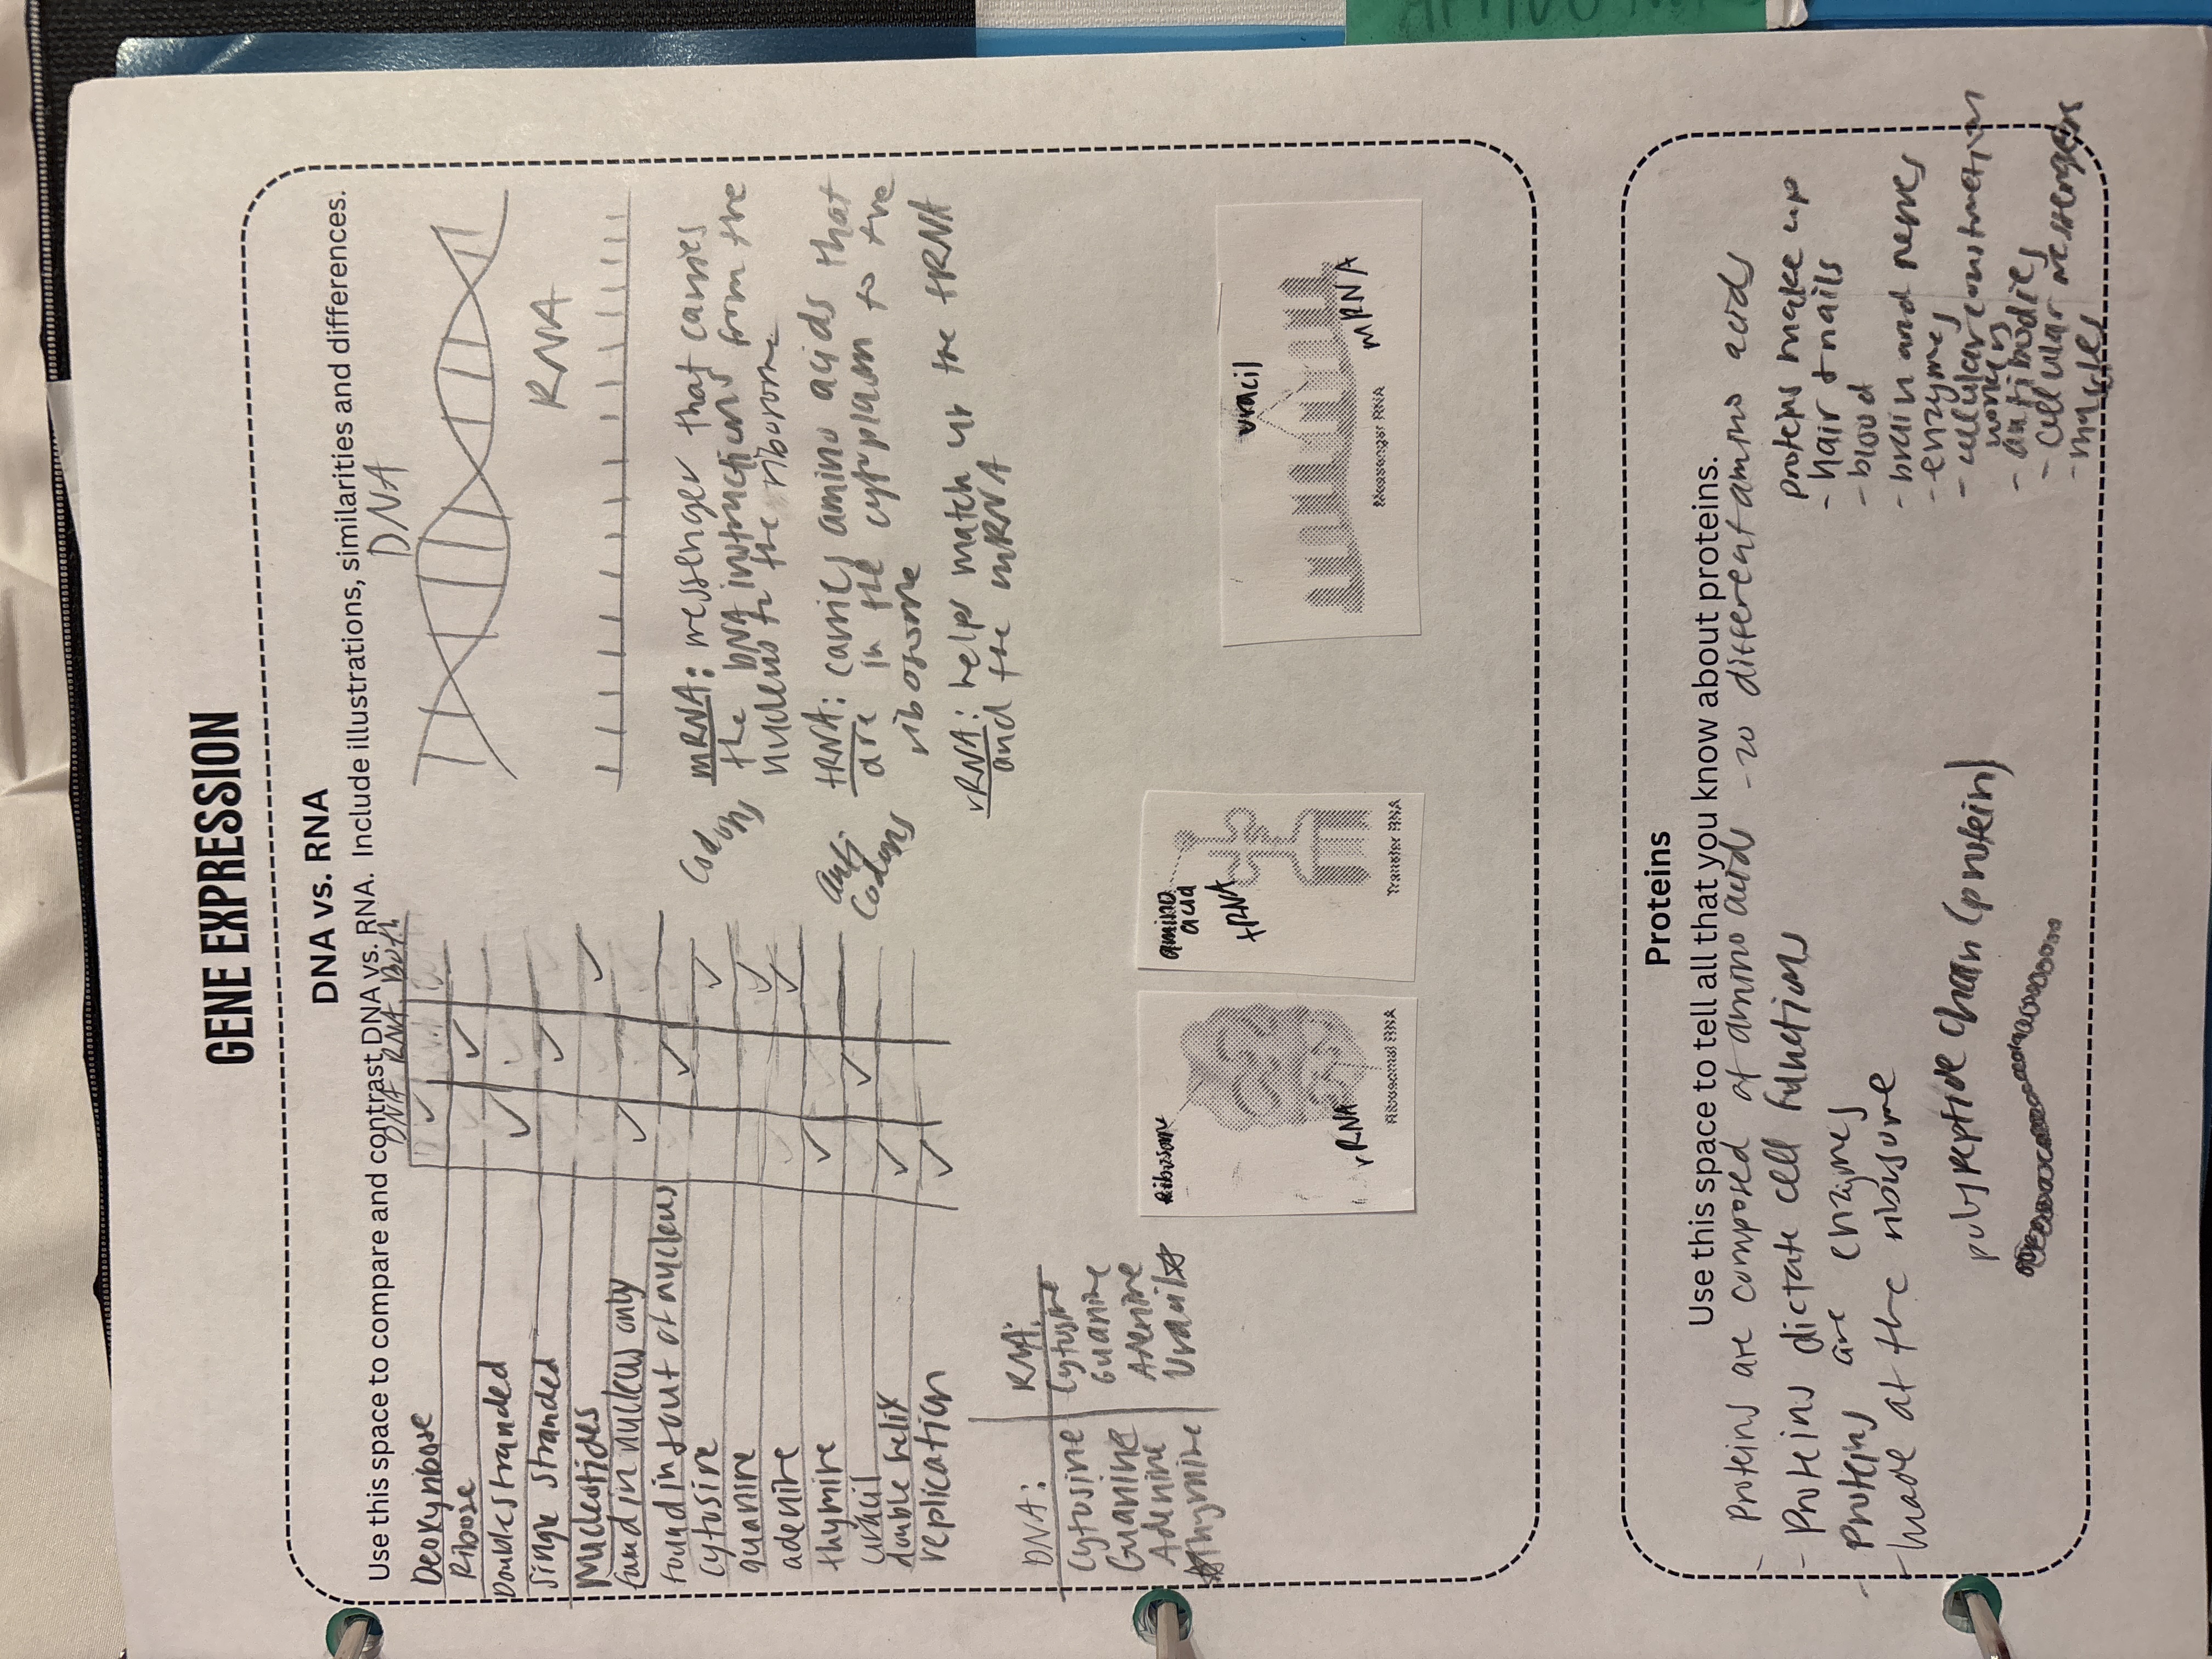 GENE EXPRESSION
DNA vs. RNA
Use this space to compare and contrast DNA vs. RNA. Include illustrations, similarities and differences.
DNA RNA Both
Deoxyribose ✓
Ribose ✓
Double stranded ✓
Singe stranded ✓
Nucleotides ✓
found in nucleus only ✓
found in + out of nucleus ✓
cytosine ✓
guanine ✓
adenine ✓
thymine ✓
uracil ✓
double helix ✓
replication ✓
DNA
RNA
Codons
mRNA: messenger that carries
the DNA instructions from the
nucleus to the ribosome
Anti-
Codons
tRNA: carries amino acids that
are in the cytoplasm to the
ribosome
rRNA: helps match up the tRNA
and the mRNA
DNA:
Cytosine
Guanine
Adenine
Thymine
RNA:
Cytosine
Guanine
Adenine
Uracil
Ribosome
rRNA
Ribosomal RNA
amino
acid
tRNA
Transfer RNA
uracil
mRNA
Messenger RNA
Proteins
Use this space to tell all that you know about proteins.
- Proteins are composed of amino acids - 20 different amino acids
- Proteins dictate cell functions
- Proteins are enzymes
- made at the ribosome
polypeptide chain (protein)
proteins make up
- hair + nails
- blood
- brain and nerves
- enzymes
- cellular construction
workers
- antibodies
- cellular messengers
- muscles